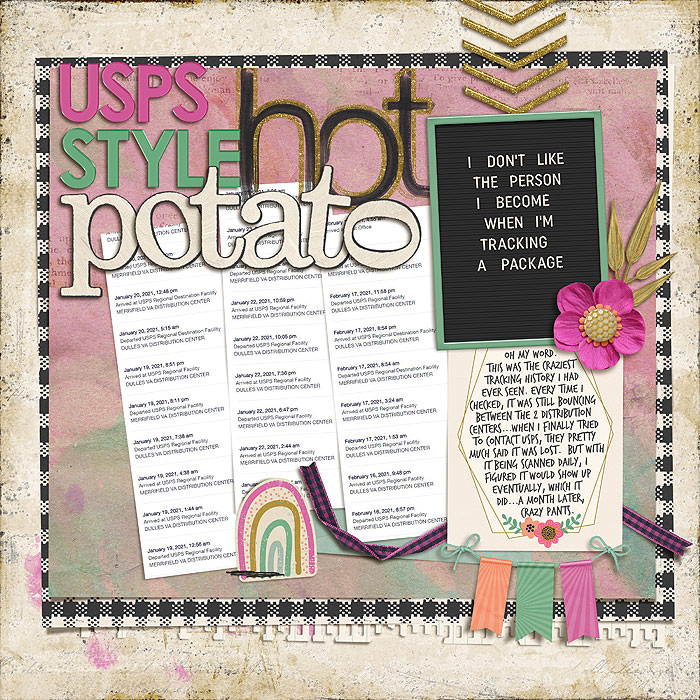 USPS
STYLE
hot
potato
I DON'T LIKE
THE PERSON
I BECOME
WHEN I'M
TRACKING
A PACKAGE
OH MY WORD.
THIS WAS THE CRAZIEST
TRACKING HISTORY I HAD
EVER SEEN. EVERY TIME I
CHECKED, IT WAS STILL BOUNCING
BETWEEN THE 2 DISTRIBUTION
CENTERS...WHEN I FINALLY TRIED
TO CONTACT USPS, THEY PRETTY
MUCH SAID IT WAS LOST. BUT WITH
IT BEING SCANNED DAILY, I
FIGURED IT WOULD SHOW UP
EVENTUALLY, WHICH IT
DID...A MONTH LATER,
CRAZY PANTS.
DULLES VA DISTRIBUTION CENTER
January 20, 2021, 12:46 pm
Arrived at USPS Regional Destination Facility
MERRIFIELD VA DISTRIBUTION CENTER
January 20, 2021, 5:15 am
Departed USPS Regional Facility
DULLES VA DISTRIBUTION CENTER
January 19, 2021, 8:51 pm
Arrived at USPS Regional Facility
DULLES VA DISTRIBUTION CENTER
January 19, 2021, 8:11 pm
Departed USPS Regional Facility
MERRIFIELD VA DISTRIBUTION CENTER
January 19, 2021, 7:38 am
Arrived at USPS Regional Facility
MERRIFIELD VA DISTRIBUTION CENTER
January 19, 2021, 4:38 am
Departed USPS Regional Facility
DULLES VA DISTRIBUTION CENTER
January 19, 2021, 1:44 am
Arrived at USPS Regional Facility
DULLES VA DISTRIBUTION CENTER
January 19, 2021, 12:56 am
Departed USPS Regional Facility
MERRIFIELD VA DISTRIBUTION CENTER
Departed USPS Regional Facility
MERRIFIELD VA DISTRIBUTION CENTER
January 22, 2021, 10:59 pm
Arrived at USPS Regional Facility
MERRIFIELD VA DISTRIBUTION CENTER
January 22, 2021, 10:05 pm
Departed USPS Regional Facility
DULLES VA DISTRIBUTION CENTER
January 22, 2021, 7:36 pm
Arrived at USPS Regional Facility
DULLES VA DISTRIBUTION CENTER
January 22, 2021, 6:47 pm
Departed USPS Regional Facility
MERRIFIELD VA DISTRIBUTION CENTER
January 22, 2021, 2:44 am
Arrived at USPS Regional Facility
MERRIFIELD VA DISTRIBUTION CENTER
Office
February 17, 2021, 11:58 pm
Departed USPS Regional Facility
MERRIFIELD VA DISTRIBUTION CENTER
February 17, 2021, 8:54 pm
Arrived at USPS Regional Destination Facility
MERRIFIELD VA DISTRIBUTION CENTER
February 17, 2021, 8:54 am
Departed USPS Regional Facility
DULLES VA DISTRIBUTION CENTER
February 17, 2021, 3:24 am
Arrived at USPS Regional Facility
DULLES VA DISTRIBUTION CENTER
February 17, 2021, 1:53 am
Departed USPS Regional Facility
MERRIFIELD VA DISTRIBUTION CENTER
February 16, 2021, 9:48 pm
Arrived at USPS Regional Facility
MERRIFIELD VA DISTRIBUTION CENTER
February 16, 2021, 8:57 pm
Departed USPS Regional Facility
DULLES VA DISTRIBUTION CENTER